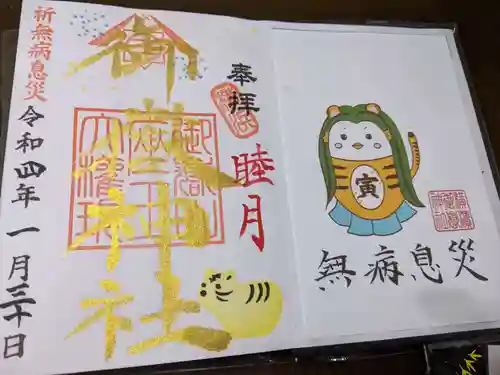 奉拝
睦月
御嶽神社
祈無病息災
令和四年一月三十日
寅
無病息災